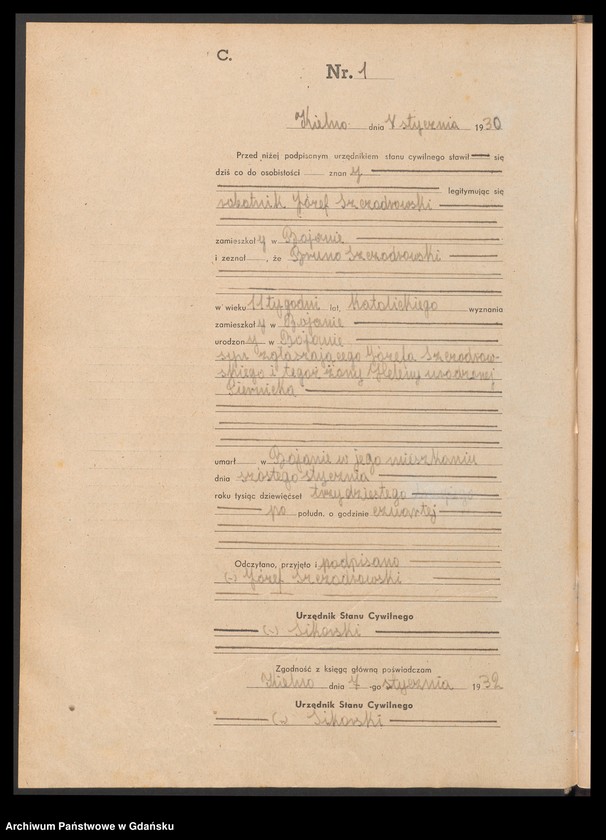 C.
Nr. 1
Kielno dnia 7 stycznia 1930
Przed niżej podpisanym urzędnikiem stanu cywilnego stawił się
dziś co do osobistości znany
legitymując się
robotnik Józef Szczodrowski
zamieszkały w Bojanie
i zeznał, że Bruno Szczodrowski
w wieku 11 tygodni lat, katolickiego wyznania
zamieszkały w Bojanie
urodzony w Bojanie
syn zgłaszającego Józefa Szczodrow-
skiego i tegoż żony Heleny urodzonej
umarł w Bojanie w jego mieszkaniu
dnia szóstego stycznia
roku tysiąc dziewięćset trzydziestego
po połudn. o godzinie czwartej
Odczytano, przyjęto i podpisano
(-) Józef Szczodrowski
Urzędnik Stanu Cywilnego
(-) Sikorski
Zgodność z księgą główną poświadczam
Kielno dnia 7-go stycznia 1932
Urzędnik Stanu Cywilnego
(-) Sikorski
Archiwum Państwowe w Gdańsku